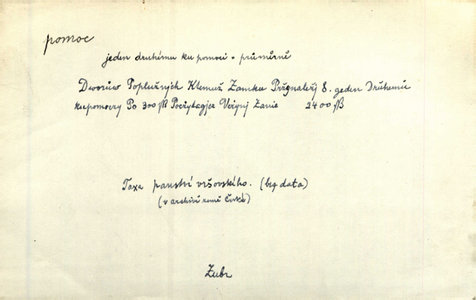 pomoc
jeden druhému ku pomoci - průměrně
Dworůw Poplužných Klemuž Zamku Přžynaležj 8. jeden Druhemu
kupomoczy Po 300 ſß Počzytagjcz Učzynj Zanie 2400 ſß
Taxa panství vršovského. (bez data)
(v archivu země České)
Zubr